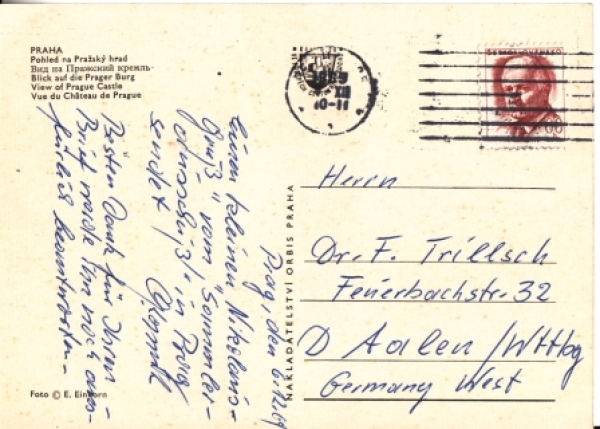 PRAHA
Pohled na Pražský hrad
Вид на Пражский кремль
Blick auf die Prager Burg
View of Prague Castle
Vue du Château de Prague
ČESKOSLOVENSKO
60
Prag, den 6.12.69
einen kleinen Nikolaus-
gruß vom "Sammler-
in Prag
sendet
Besten Dank für Ihren
Brief werde ihn noch aus-
führlich beantworten-
Foto © E. Einhorn
NAKLADATELSTVÍ ORBIS PRAHA
Herrn
Dr. F. Trillsch
Feuerbachstr. 32
D Aalen / Wttbg
Germany West